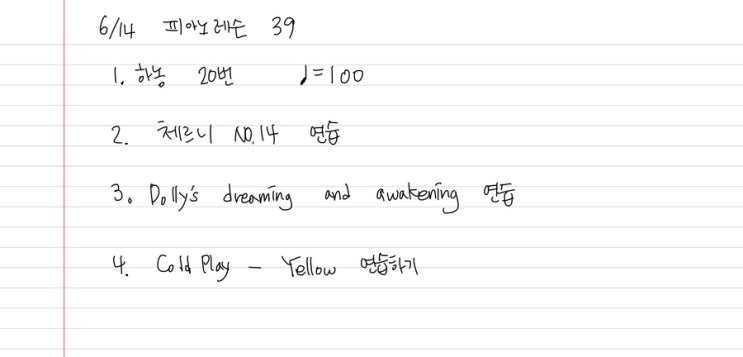 6/14 피아노레슨 39
1. 하농 20번 ♩=100
2. 체르니 NO.14 연습
3. Dolly's dreaming and awakening 연습
4. Cold Play - Yellow 연습하기